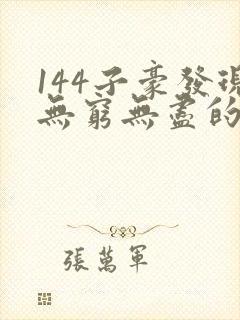 144子豪發現
無窮無盡的
張萬軍